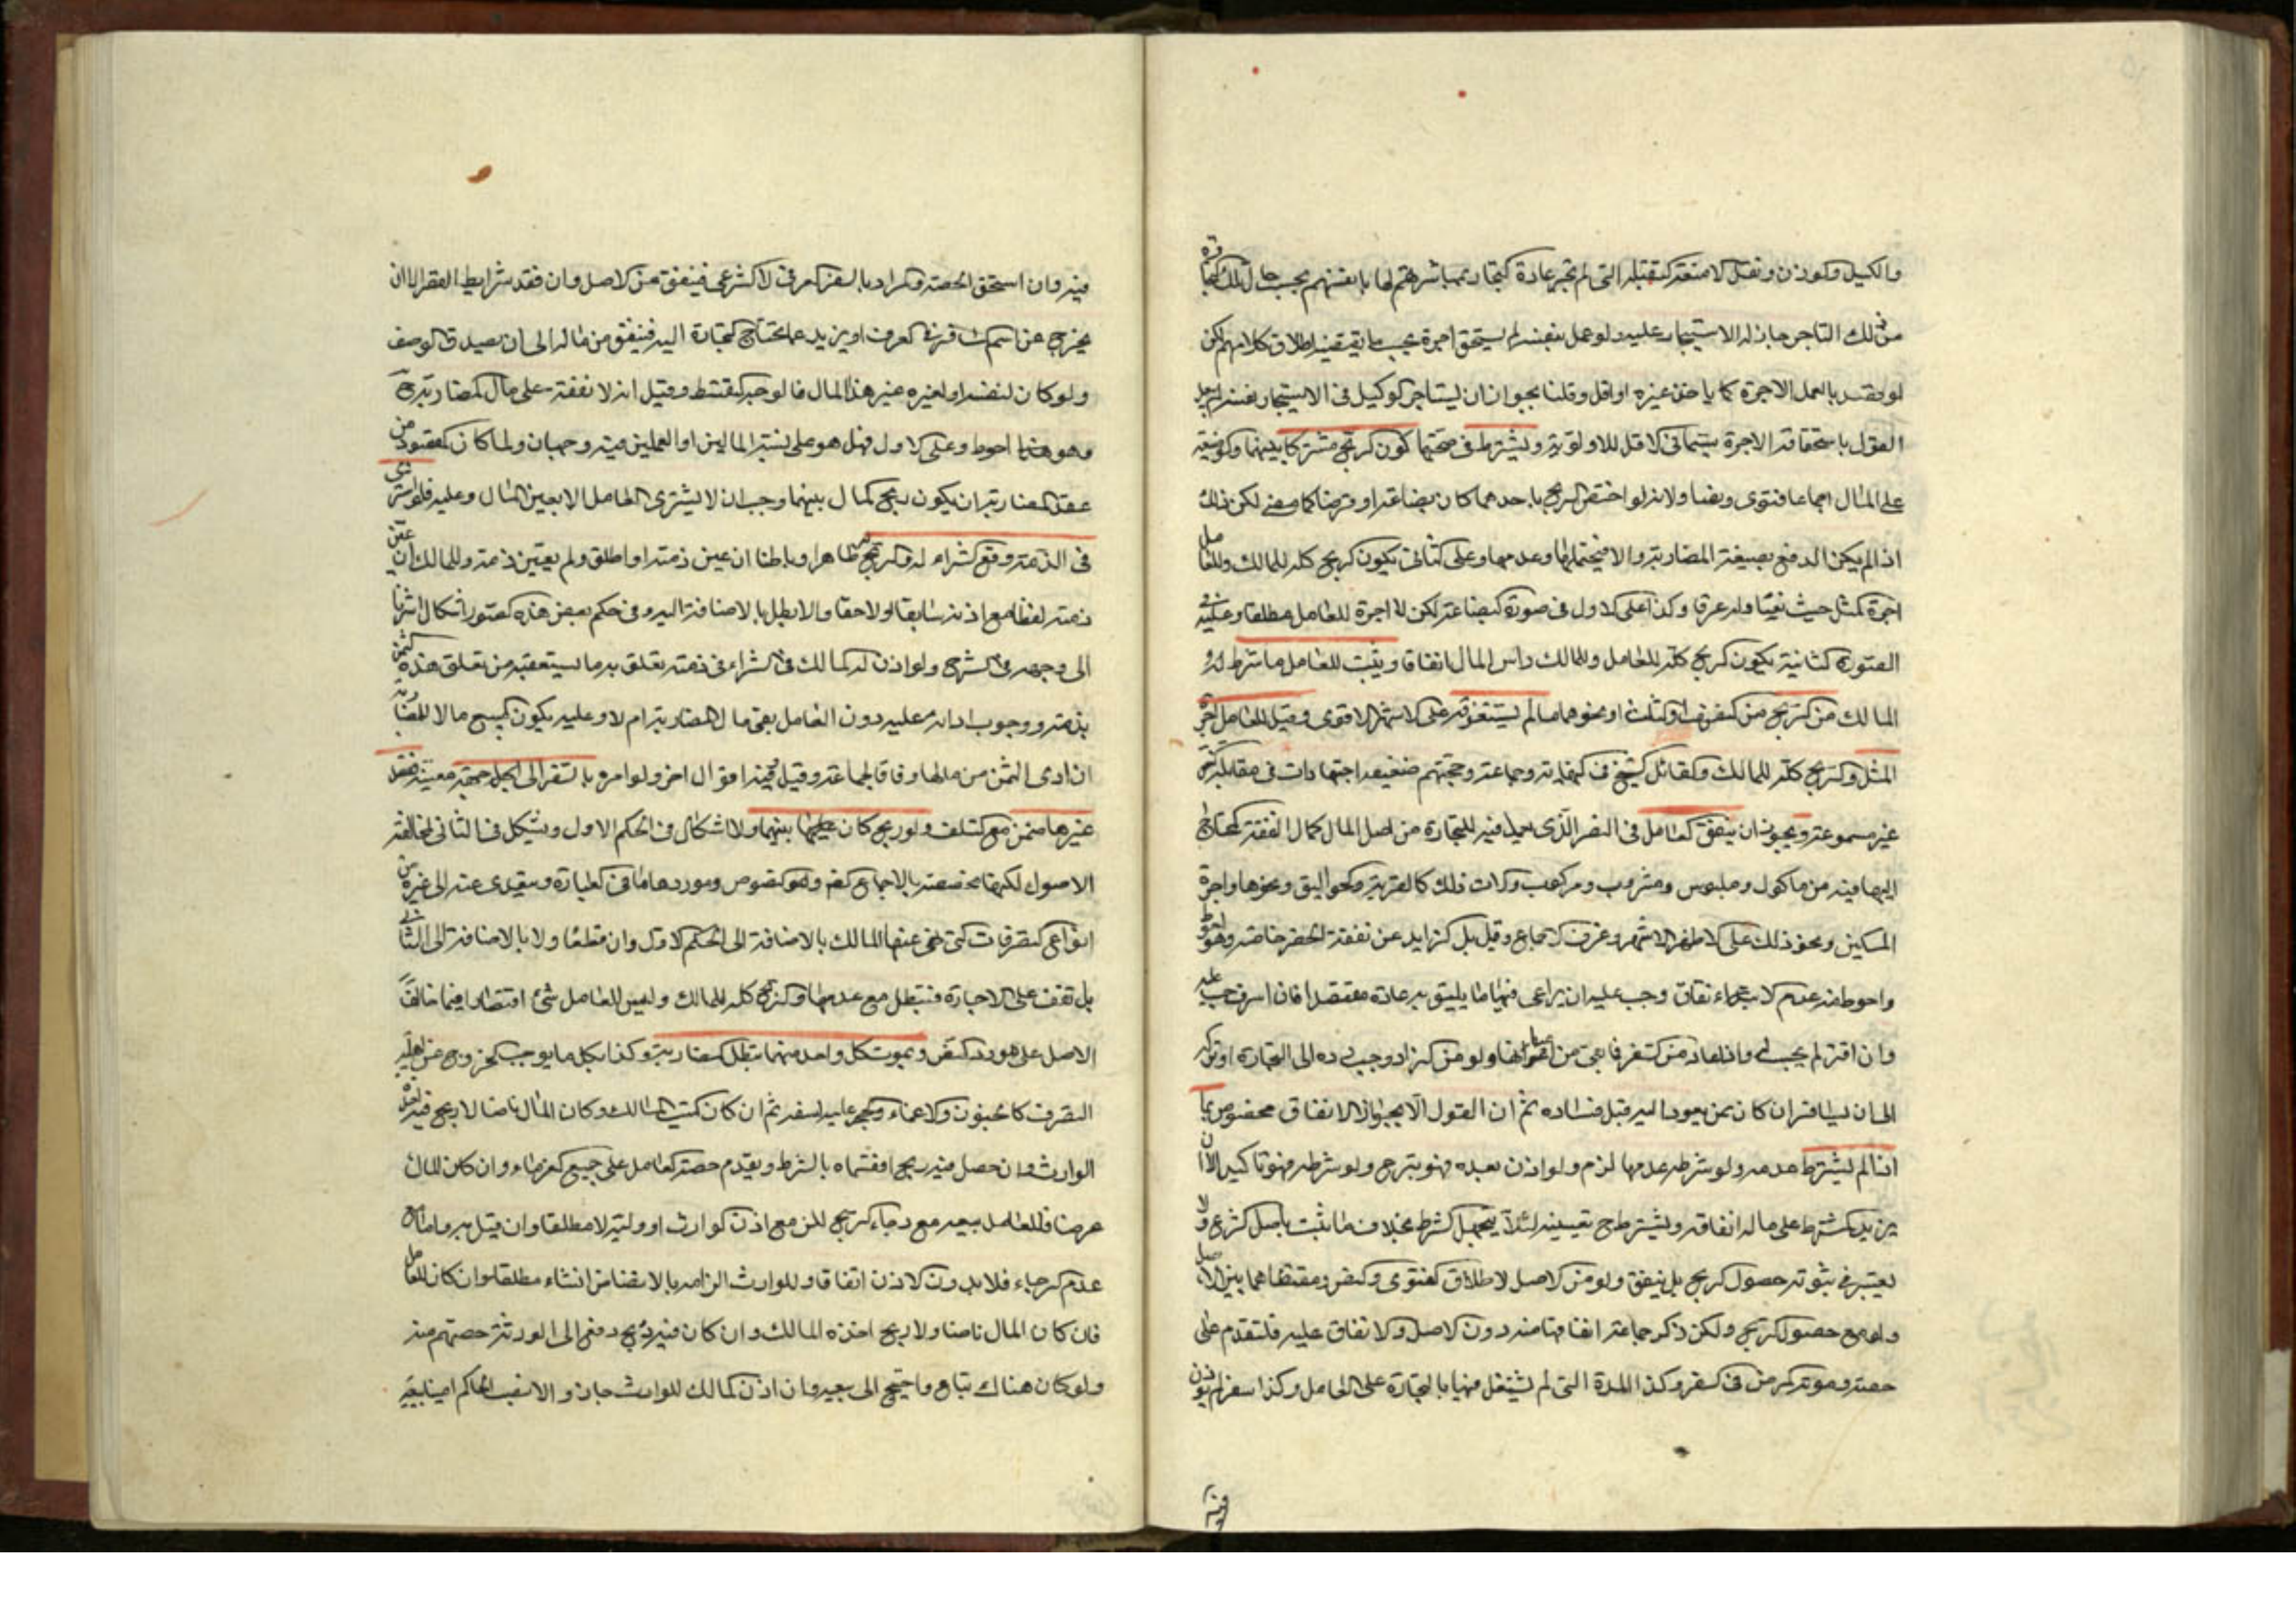 والكيل والوزن ونقل الامتعة الثقيلة التي لم تجر عادة التجار بمباشرتهم لها بانفسهم بحسب حال تلك التجارة
من ذلك التاجر جاز له الاستيجار عليه ولو عمل بنفسه لم يستحق اجرة بحسب ما يقتضيه اطلاق كلامهم لكن
لو قصد بالعمل الاجرة كما ياخذ غيره او اقل وقلنا بجواز ان يستاجر الوكيل في الاستيجار نفسه
القول باستحقاقه الاجرة سيما في الاقل للاولوية ويشترط في صحتها كون الربح مشتركا بينهما
على المثال اجماعا فتوى ونصا ولانه لو اختص الربح باحدهما كان بضاعة او قرضا كما مضى لكن ذلك
اذا لم يكن الدفع بصيغة المضاربة والا فيحتملها وعدمها وعلى الثاني يكون الربح كله للمالك وللعامل
اجرة المثل حيث نفيا وله عرفا وكذا على الاول في صورة البضاعة لكن لا اجرة للعامل مطلقا
الصورة الثانية يكون الربح كله للعامل وللمالك راس المال اتفاقا ويثبت للعامل ما شرط له
المالك من الربح من النصف او الثلث او نحوهما ما لم يستغرقه على الاشهر الاقوى وقيل للعامل اجرة
المثل والربح كله للمالك والقائل الشيخ في النهاية وجماعة وحجتهم ضعيفة اجتهادات في مقابلة النص
غير مسموعة ويجوز ان ينفق العامل في السفر الذي يعمل فيه للتجارة من اصل المال كمال النفقة المحتاج
اليها فيه من ماكول وملبوس ومشروب ومركوب والات ذلك كالقربة والجواليق ونحوها واجرة
المسكن ونحو ذلك على الاظهر الاشهر وعن الاجماع وقيل بل الزايد عن نفقة الحضر خاصة وهو احوط
واحوط منه عدم الانفاق وجب عليه ان يراعي فيها ما يليق به عادة مقتصدا فان اسرف حسب عليه
وان اقتر لم يحسب له واذا عاد من السفر فما بقي من اعيانها ولو من الزاد وجب رده الى التجارة او تركه
الى ان يسافر ان كان ممن يعود اليه قبل فساده ثم ان القول الا بجواز الانفاق مخصوص بما
اذا لم يشترط عدمه ولو شرط عدمها لزم ولو اذن بعده فهو تبرع ولو شرطه فهو تاكيد الا ان
يزيد الشرط على ماله انفاقه ويشترط ح تعيينه لئلا يتجهل الشرط بخلاف ما ثبت باصل الشرع ولا
يعتبر في ثبوته حصول الربح بل ينفق ولو من الاصل لاطلاق الفتوى والنص ومقتضاهما بين الاصل
ولو مع حصول الربح ولكن ذكر جماعة انفاقها منه دون الاصل والاتفاق عليه فلتقدم على
حصته ومؤنة المرض في السفر وكذا المدة التي لم يشتغل فيها بالتجارة على العامل وكذا سفر لم يؤذن
فيه
فيه وان استحق الحصة والمراد بالسفر العرفي لا الشرعي فينفق من الاصل وان فقد شرايط القصر الا ان
يخرج عن اسم المسافر في العرف او يزيد عما يحتاج التجارة اليه فينفق من ماله الى ان يصدق الوصف
ولو كان لنفسه او لغيره غير هذا المال فالوجه التقسط وقيل انه لا نفقة على مال المضاربة ح
وهو احوط وعلى الاول فهل هو على نسبة المالين او العملين فيه وجهان ولما كان المقصود من
عقد المضاربة ان يكون ربح المال بينهما وجب ان لا يشتري العامل الا بعين المال وعليه فلو اشترى
في الذمة وقع الشراء له والربح ظاهرا وباطنا ان عين ذمته او اطلق ولم يعين ذمة وللمالك ان عين
ذمته لفظا مع اذنه سابقا او لاحقا والا بطل بالاضافة اليه وفي حكم بعض هذه الصور اشكال اشرنا
الى وجهه في الشرح ولو اذن له المالك في الشراء في ذمته تعلق به ما يستعقبه من تعلق هذه الثمن
بذمته ووجوب ادائه عليه دون العامل بقي مال المضاربة ام لا وعليه يكون المبيع مالا للمضاربة
ان ادى الثمن من مالها وفاقا لجماعة وقيل فيه اقوال اخر ولو امره بالسفر الى جهة معينة فقصد
غيرها ضمن مع التلف ولو ربح كان بينهما ولا اشكال في الحكم الاول ويشكل في الثاني لمخالفته
الاصول لكنها مخصصة بالاجماع والنصوص وموردها ما في العبارة ويتعدى عنه الى غيره من
انواع التصرفات التي نهى عنها المالك بالاضافة الى الحكم الاول وان قطعنا ولا بالاضافة الى الثاني
بل تقف على الاجازة فتبطل مع عدمها والربح كله للمالك وليس للعامل شئ اقتصارا فيما خالف
الاصل على مورد النص وبموت كل واحد منهما تبطل المضاربة وكذا بكل ما يوجب الخروج عن اهلية
التصرف كالجنون والاغماء والحجر عليه لسفه ثم ان كان الميت المالك وكان المال ناضا لا ربح فيه اخذه
الوارث وان حصل فيه ربح اقتسماه بالشرط ويقدم حصة العامل على جميع الغرماء وان كان المال
عرضا فللعامل بيعه مع رجاء الربح لكن مع اذن الوارث او وليه لا مطلقا وان قيل به واما مع
عدم الرجاء فلا بدون الاذن اتفاقا وللوارث الزامه بالانضاض ان شاء مطلقا وان كان العامل
فان كان المال ناضا ولا ربح اخذه المالك وان كان فيه ربح دفع الى الورثة حصتهم منه
ولو كان هناك متاع واحتيج الى بيعه فان اذن المالك للوارث جاز والا نصب الحاكم امينا يبيعه